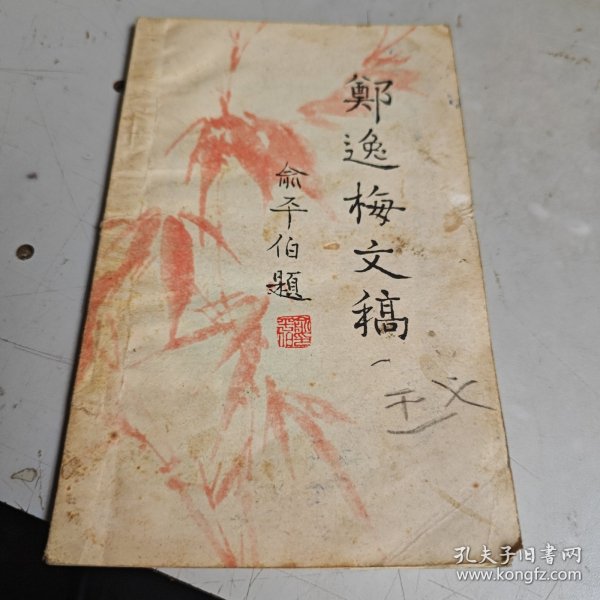 鄭逸梅文稿
俞平伯題
孔夫子旧书网
www.kongfz.com